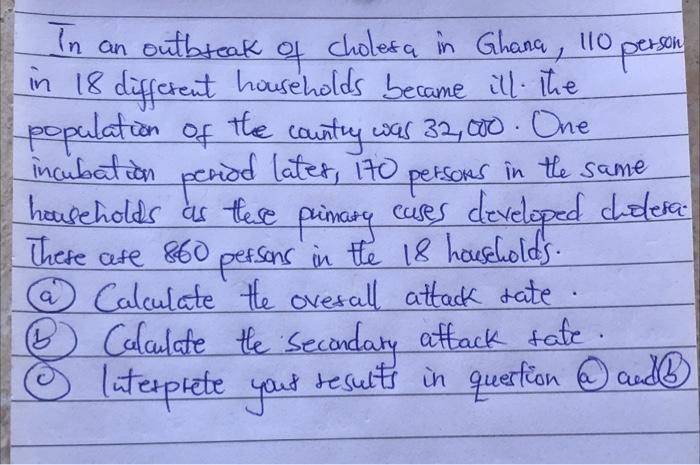 In an outbreak of cholera in Ghana, 110 person
in 18 different households became ill. The
population of the country was 32,000. One
incubation period later, 170 persons in the same
households as these primary cases developed cholera.
There are 860 persons in the 18 households.
(a) Calculate the overall attack rate.
(b) Calculate the secondary attack rate.
(c) Interprete your results in question (a) and (b)